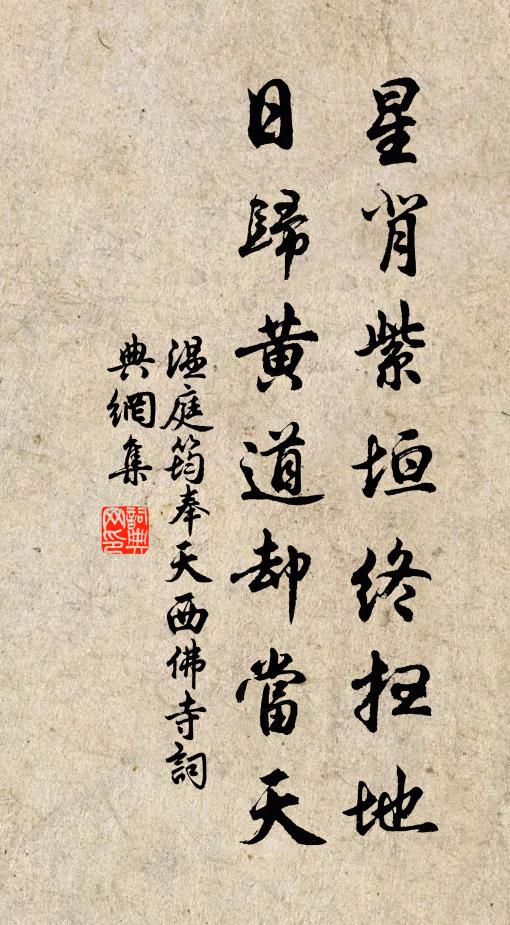 星背紫垣終扫地
日歸黃道却當天
温庭筠奉天西佛寺詞
典網集
詞典网印